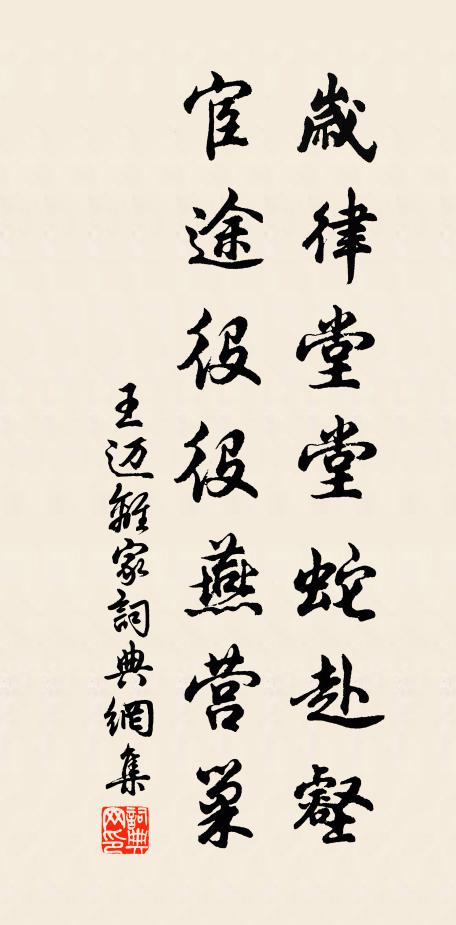 歲律堂堂蛇赴壑
宦途役役燕营巢
王迈離家詞典網集
詞典網印